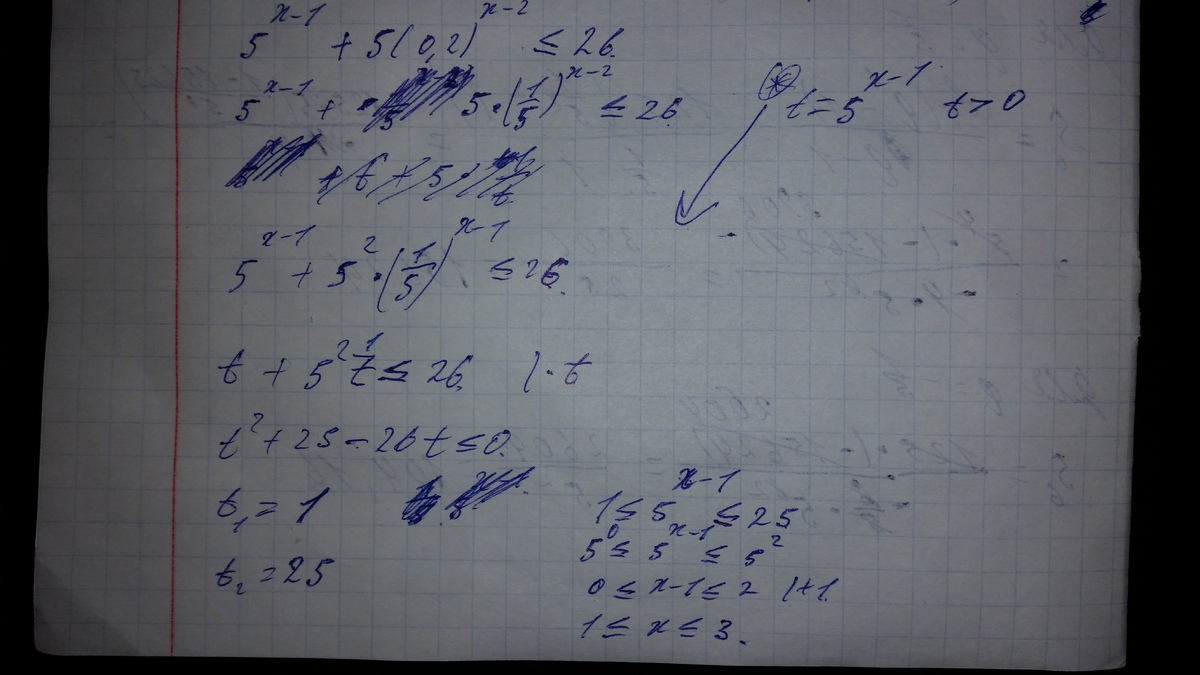 5^{x-1} + 5(0,2)^{x-2} ≤ 26.
5^{x-1} + · 5·(1/5)^{x-2} ≤ 26
t = 5^{x-1} t > 0
5^{x-1} + 5^2·(1/5)^{x-1} ≤ 26.
t + 5^2 1/t ≤ 26 |· t
t^2 + 25 - 26t ≤ 0.
t_1 = 1
t_2 = 25
1 ≤ 5^{x-1} ≤ 25
5^0 ≤ 5^{x-1} ≤ 5^2
0 ≤ x-1 ≤ 2 |+1.
1 ≤ x ≤ 3.